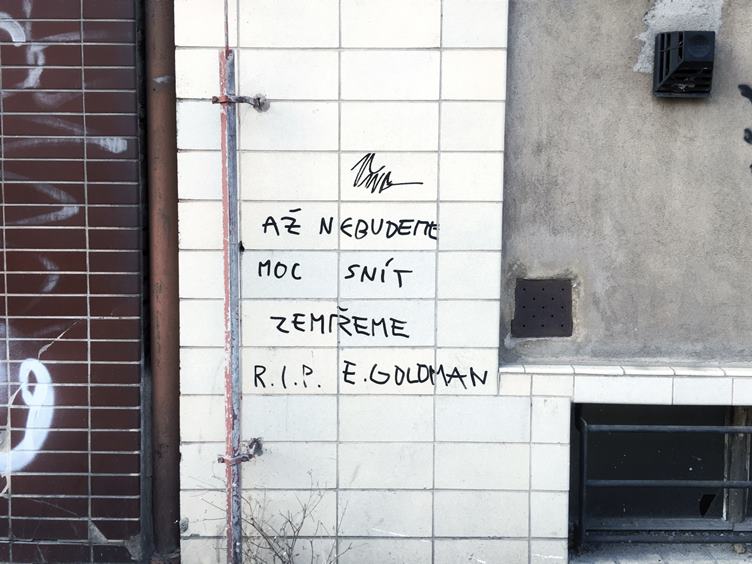 AŽ NEBUDEME
MOC SNÍT
ZEMŘEME
R.I.P. E.GOLDMAN